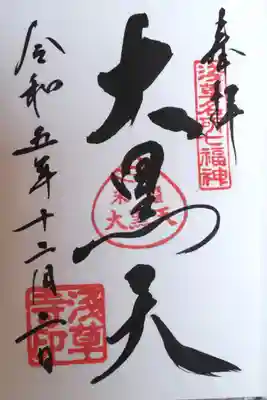 奉拝
浅草名所七福神
大黒天
大黒天
令和五年十二月二日
浅草
寺印